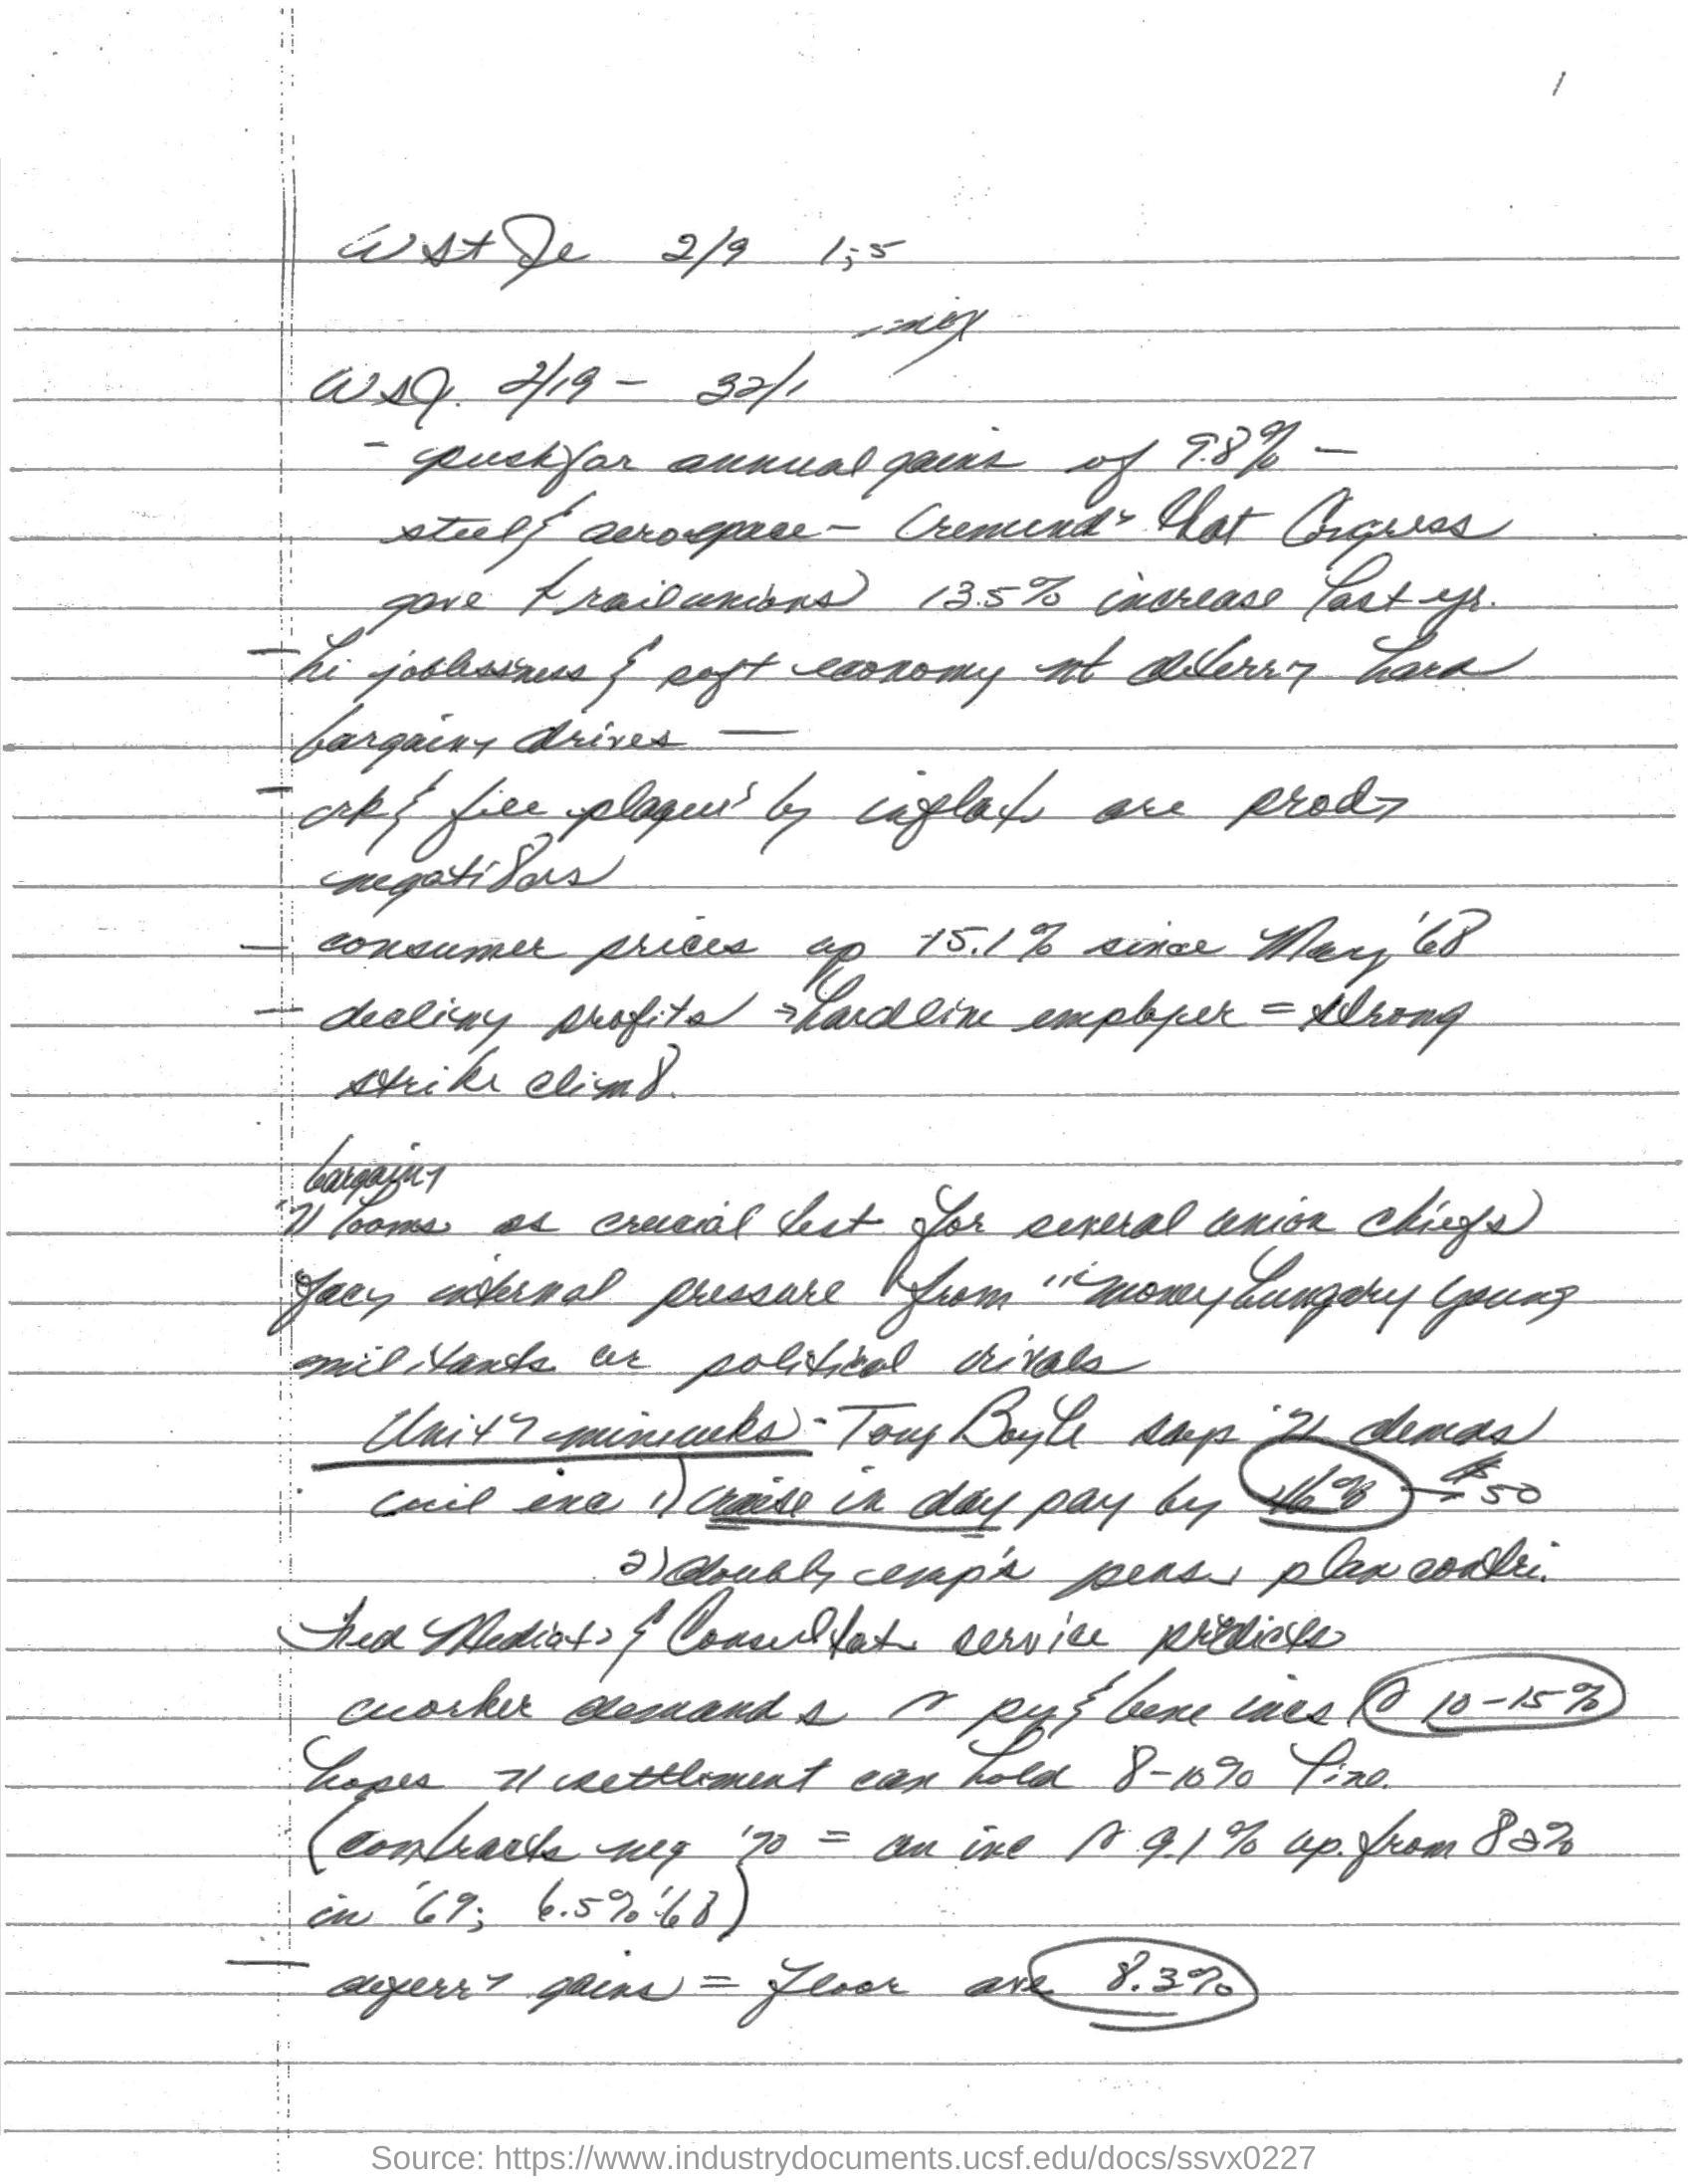 1
W St Jr 2/9 1;5
WSJ. 2/19 - 32/1
- push for annual gains of 9.8% -
steel & aerospace - (remind that Congress
gave rail unions) 13.5% increase last yr.
- hi joblessness & soft economy nt deterr hard
bargain drives -
- rk & file plagu'd by inflat are prod
negoti8ors
- consumer prices up 15.1% since May '68
- declin profits → hardline employer = strong
strike clim8.
bargain
'71 looms as crucial test for several union chiefs
fac internal pressure from "money hungary young
militants or political rivals
Unit minewks - Tony Boyle says '71 demas
will inc 1) raise in day pay by → $50
2) doubl emp's pens plan contri.
Fed Mediat & Consultat service predicts
worker demands py & bene incs 10-15%
hopes 71 settlement can hold 8-10% line.
(contracts neg '70 = an inc 9.1% up from 8.2%
in '69; 6.5% '68)
- deferr gains = floor ave 8.3%
Source: https://www.industrydocuments.ucsf.edu/docs/ssvx0227